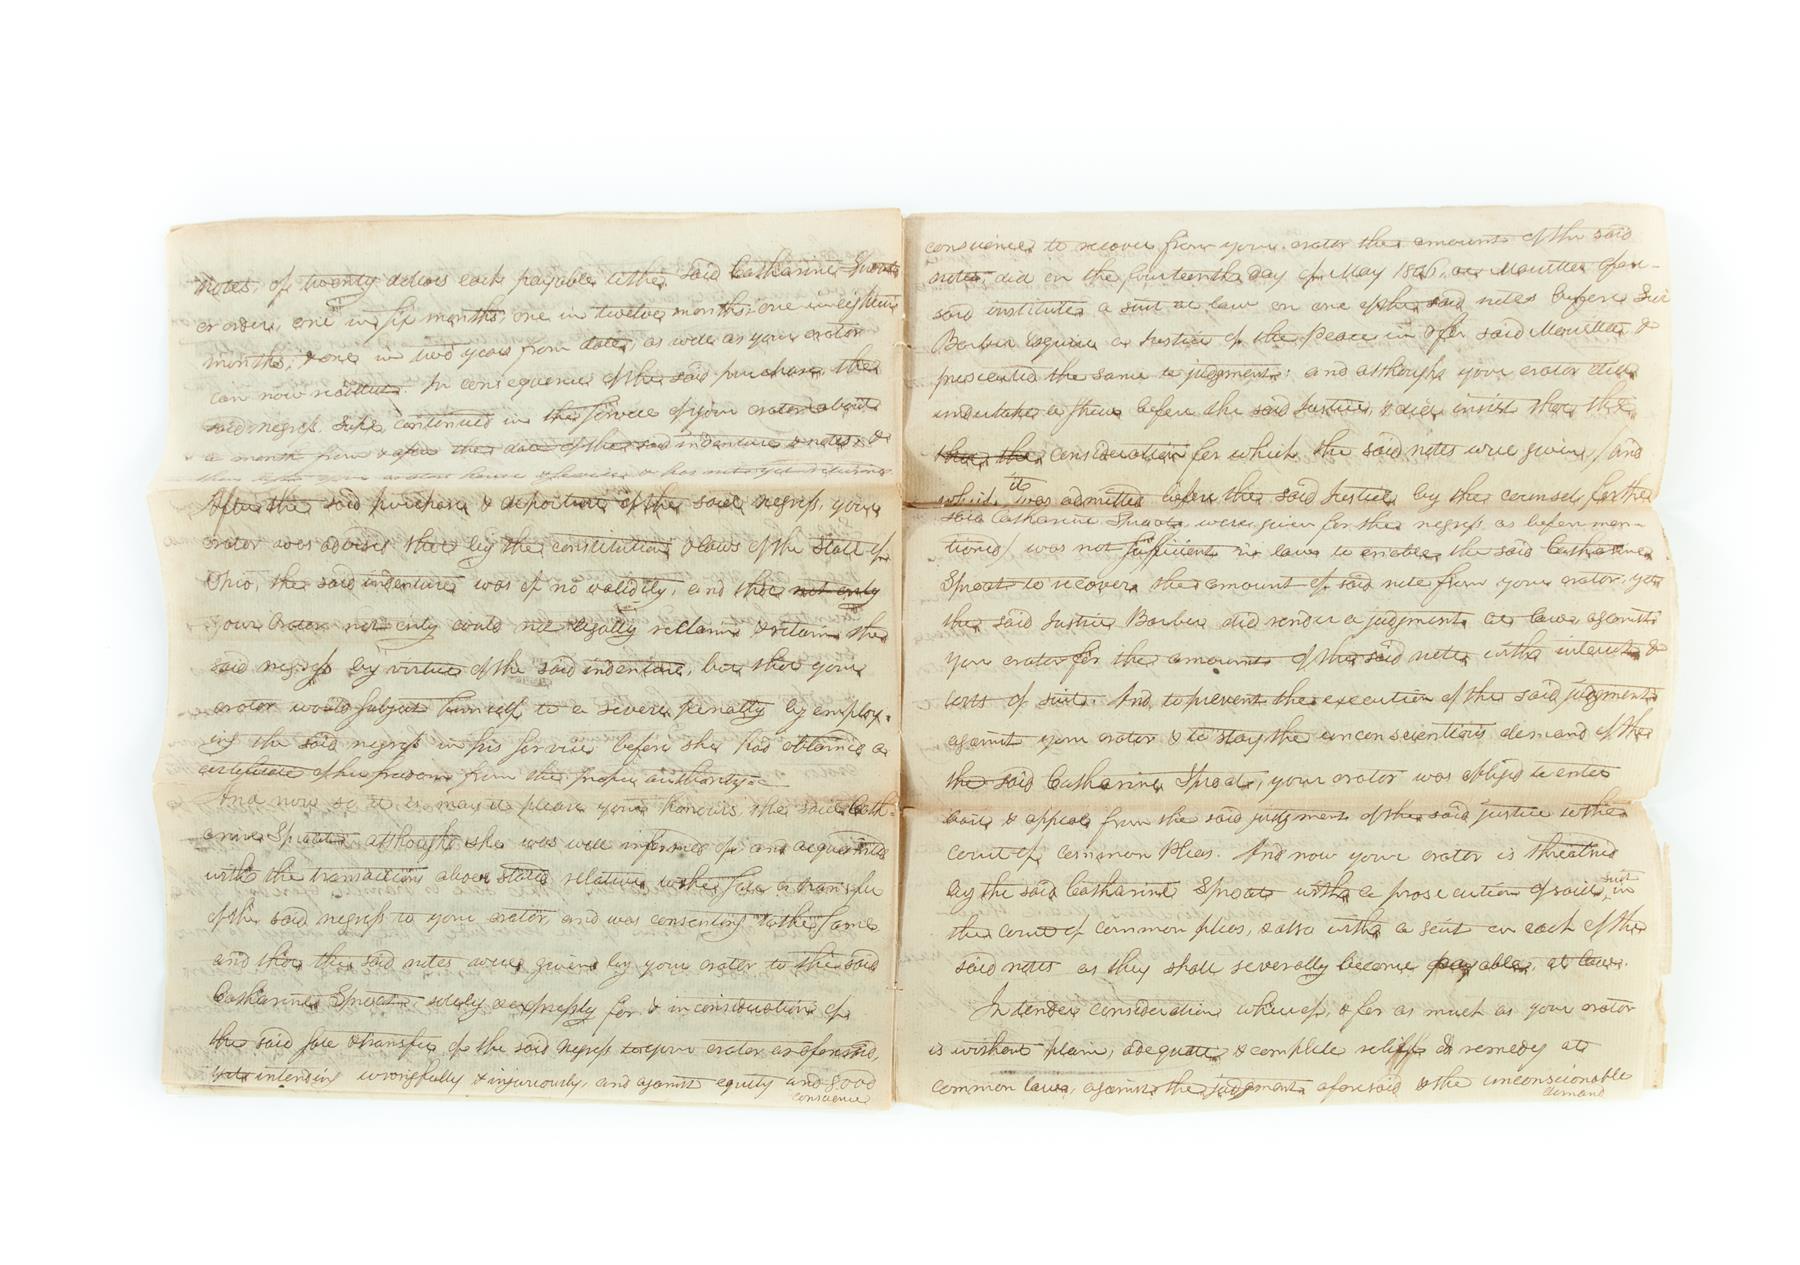 notes, of twenty dolars each payable to the said Catharine Sproat
or order, one in six months, one in twelve months, one in eighteen
months, & one in two years from date, as well as your orator
can now recollect. In consequence of the said purchase, the
said negress, continued in the service of your orator about
a month from & after the date of the said indenture & notes, &
then left your orators house & service & has not yet returned
After the said purchase & departure of the said negress, your
orator was advised that by the constitution & laws of the State of
Ohio, the said indenture was of no validity, and that not only
your Orator not only could not legally reclaim & retain the
said negress by virtue of the said indenture, but that your
orator would subject himself to a severe penalty by employ-
ing the said negress in his service before she had obtained a
certificate of her freedom from the proper authority
And now so it is, may it please your honours, the said Cath-
arine Sproat, although she was well informed of and acquainted
with the transactions above stated relative to the sale & transfer
of the said negress to your orator, and was consenting to the same
and that the said notes were given by your orator to the said
Catharine Sproat, solely & expressly for & in consideration of
the said sale & transfer of the said negress to your orator as aforesaid,
yet intending wrongfully & injuriously, and against equity and good
conscience
conscience to recover from your orator the amount of the said
notes, did on the fourteenth day of May 1806, at Marietta afore-
said institute a suit at law on one of the said notes before
Barber Esquire a Justice of the Peace in & for said Marietta &
presented the same to judgment: and although your orator did
undertake a there before the said Justice, & did insist that the
that the consideration for which the said notes were given (and
which it was admitted before the said Justice by the counsel for the
said Catharine Sproat, were given for the negress as before men-
tioned) was not sufficient in law to enable the said Catharine
Sproat to recover the amount of said note from your orator, yet
the said Justice Barber did render a judgment at law against
your orator for the amount of the said note with interest &
costs of suit. And to prevent the execution of the said judgment
against your orator & to stay the unconscientious demand of the
the said Catharine Sproat, your orator was obliged to enter
bail & appeal from the said judgment of the said justice to the
court of common Pleas. And now your orator is threatned
by the said Catharine Sproat with a prosecution of said suit in
the court of common pleas, & also with a suit on each of the
said notes as they shall severally become payable, at law.
In tender consideration whereof, & for as much as your orator
is without plain, adequate & complete relief & remedy at
common law, against the judgment aforesaid & the unconscionable
demand